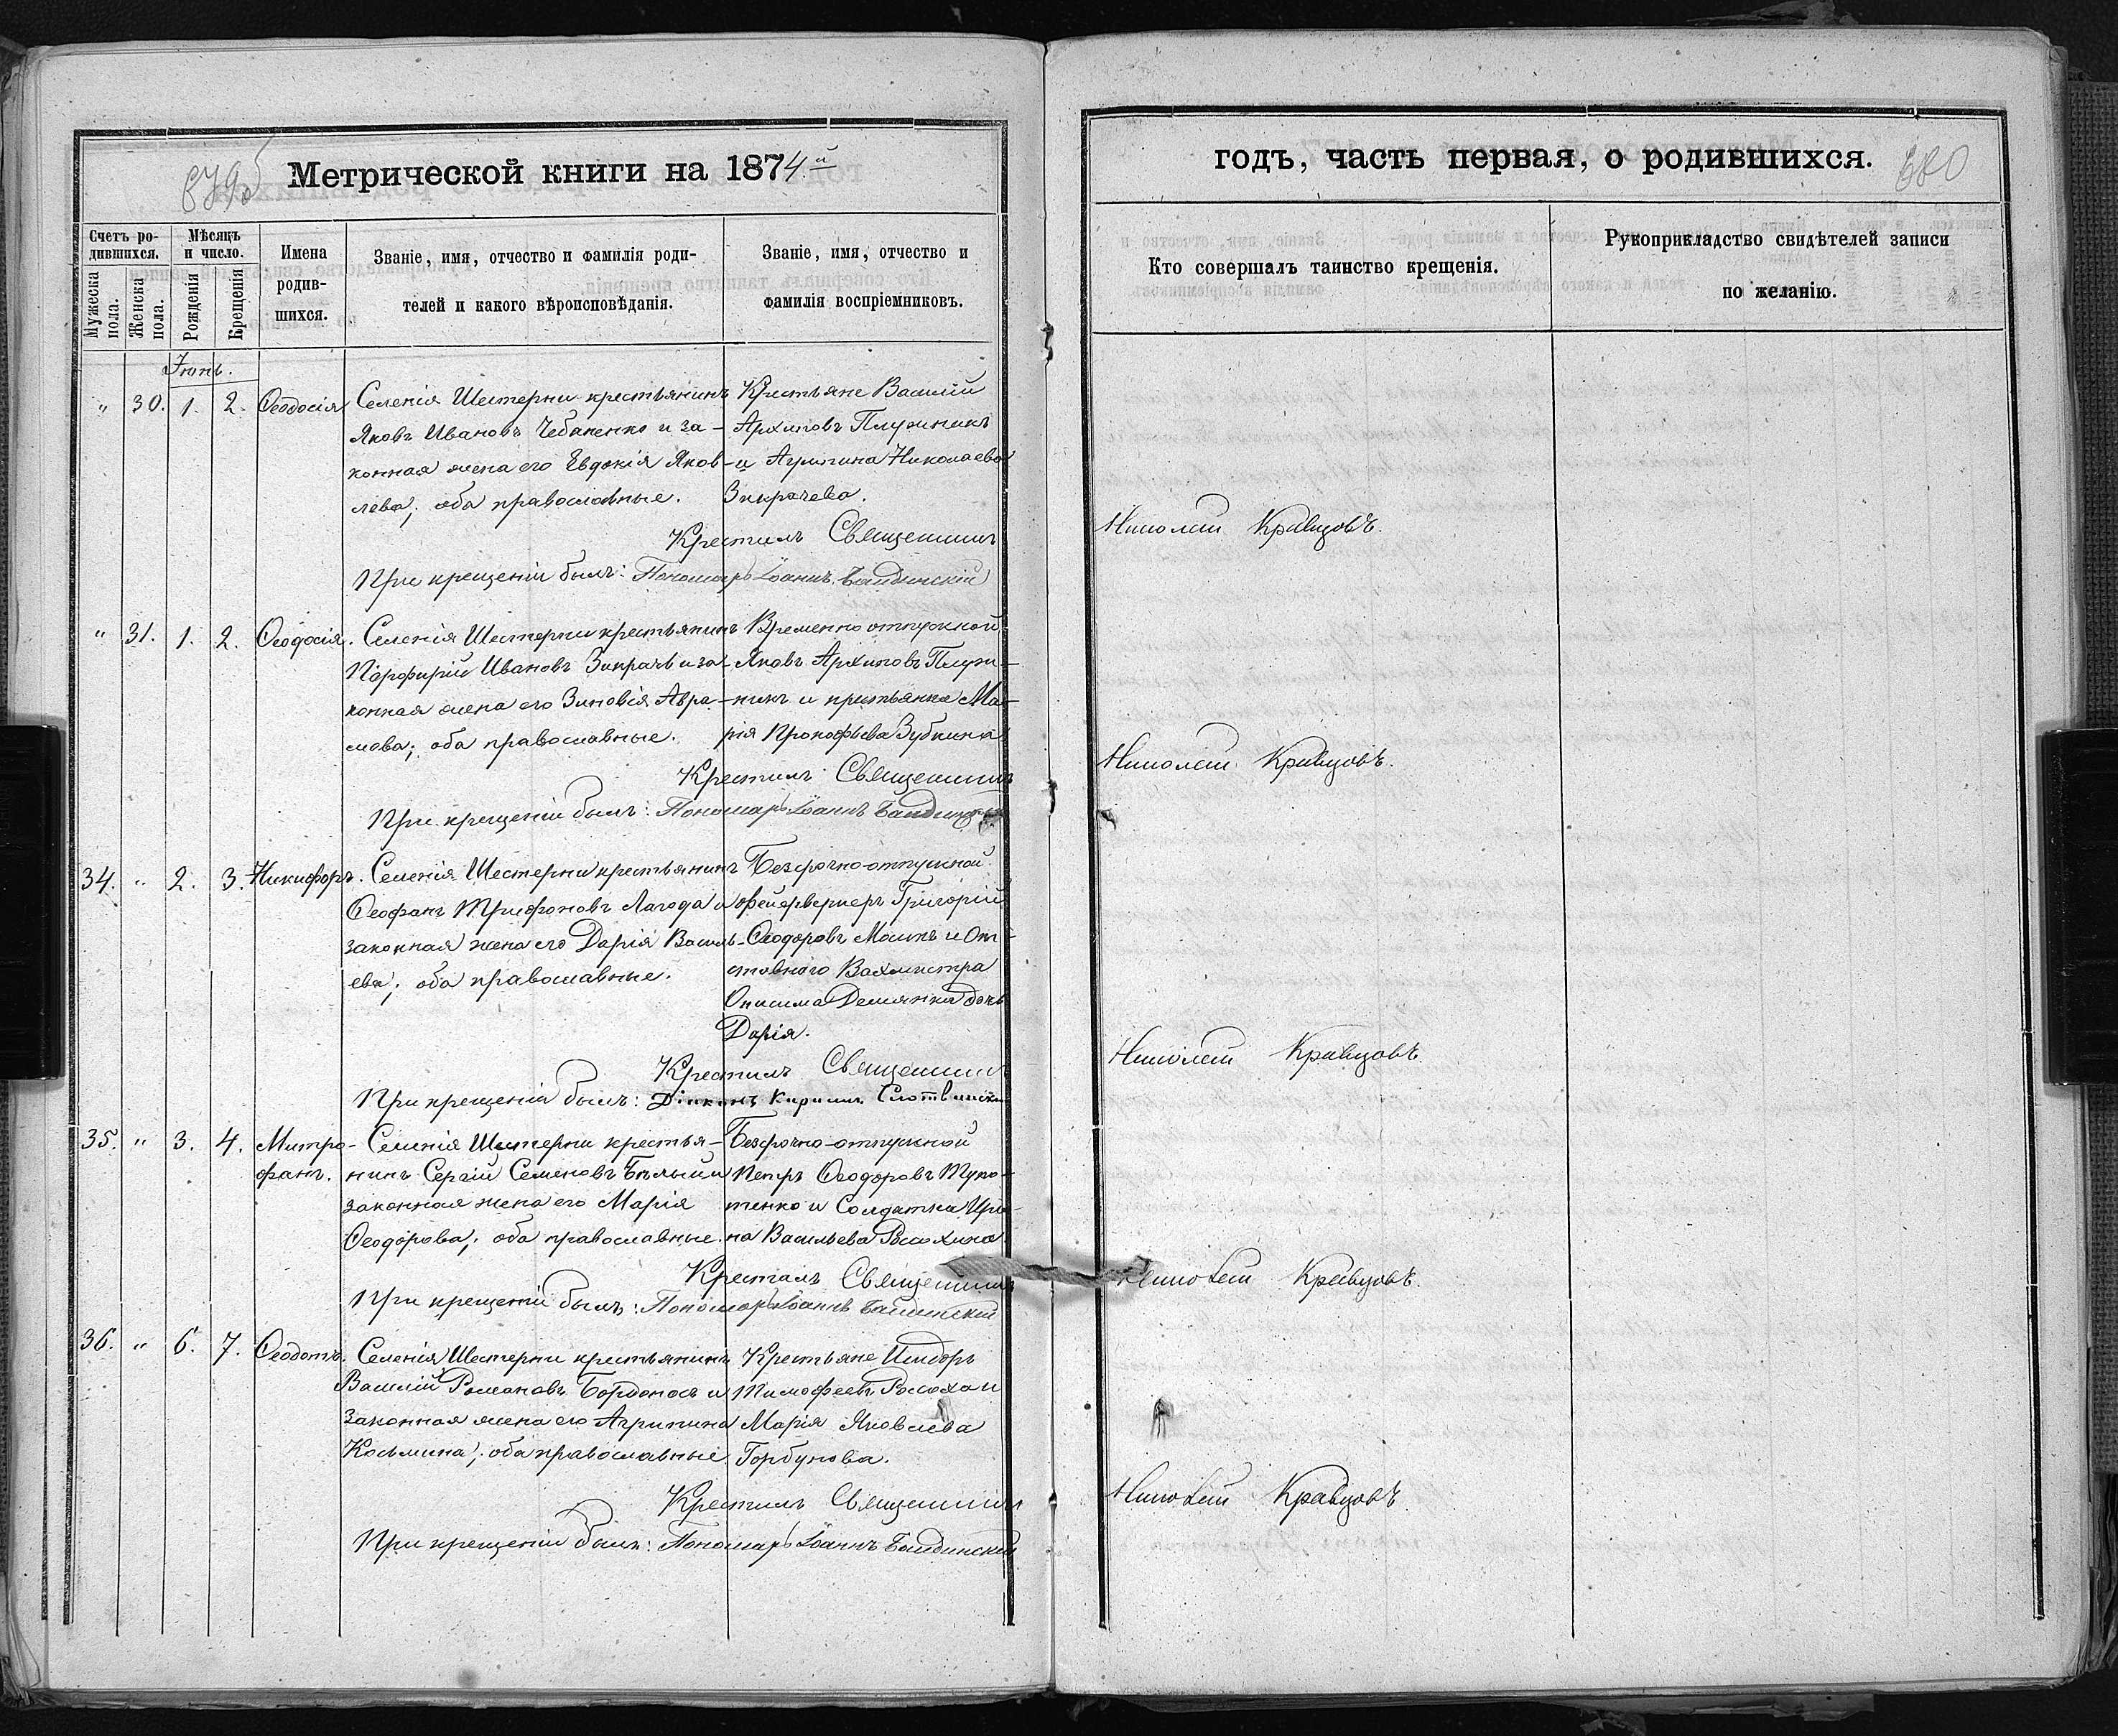 879об
Метрической книги на 1874й
Счетъ ро-
дившихся.
Мѣсяцъ
и число.
Имена
родив-
шихся.
Званіе, имя, отчество и фамилія роди-
телей и какого вѣроисповѣданія.
Званіе, имя, отчество и
фамилія воспріемниковъ.
Мужеска
пола.
Женска
пола.
Рожденія
Крещенія
Іюнь.
" 30. 1. 2. Ѳеодосія Селенія Шестерни крестьянинъ Крестьяне Василій
Яковъ Ивановъ Чебаненко и за- Архиповъ Плужникъ
конная жена его Евдокія Яков- и Агрипина Николаева
лева; оба православные. Зикрачева.
Крестилъ Священникъ
При крещеніи былъ: Пономарь Іоаннъ
" 31. 1. 2. Ѳеодосія. Селенія Шестерни крестьянинъ Временно отпускной
Парфирій Ивановъ Зикрачь и за- Яковъ Архиповъ Плуж-
конная жена его Зиновія Авра- никъ и крестьянка Ма-
мова; оба православные. рія Прокофьева Зубкина
Крестилъ Священникъ
При крещеніи былъ: Пономарь Іоаннъ
34. " 2. 3. Никифоръ. Селенія Шестерни крестьянинъ Безсрочно-отпускной
Ѳеофанъ Трифоновъ Лагода и фейерверкеръ Григорій
законная жена его Дарія Василь- Ѳеодоровъ и От-
ева; оба православные. ставного Вахмистра
Онисима Демянки дочь
Дарія.
Крестилъ Священникъ
При крещеніи былъ: Діаконъ Кириллъ
35. " 3. 4. Митро- Селенія Шестерни крестья- Безсрочно-отпускной
фанъ. нинъ Сергій Семеновъ Бѣлый и Петръ Ѳеодоровъ
законная жена его Марія и Солдатка Ири-
Ѳеодорова; оба православные. на Васильева Росохина
Крестилъ Священникъ
При крещеніи былъ: Пономарь Іоаннъ
36. " 6. 7. Ѳеодотъ. Селенія Шестерни крестьянинъ Крестьяне Исидоръ
Василій Романовъ Бордоносъ и Тимофеевъ Росоха и
законная жена его Агрипина Марія Яковлева
Косьмина; оба православные. Горбунова.
Крестилъ Священникъ
При крещеніи былъ: Пономарь Іоаннъ
годъ, часть первая, о родившихся.
880
Кто совершалъ таинство крещенія.
Рукоприкладство свидѣтелей записи
по желанію.
Николай Кравцовъ.
Николай Кравцовъ.
Николай Кравцовъ
Николай Кравцовъ.
Николай Кравцовъ.